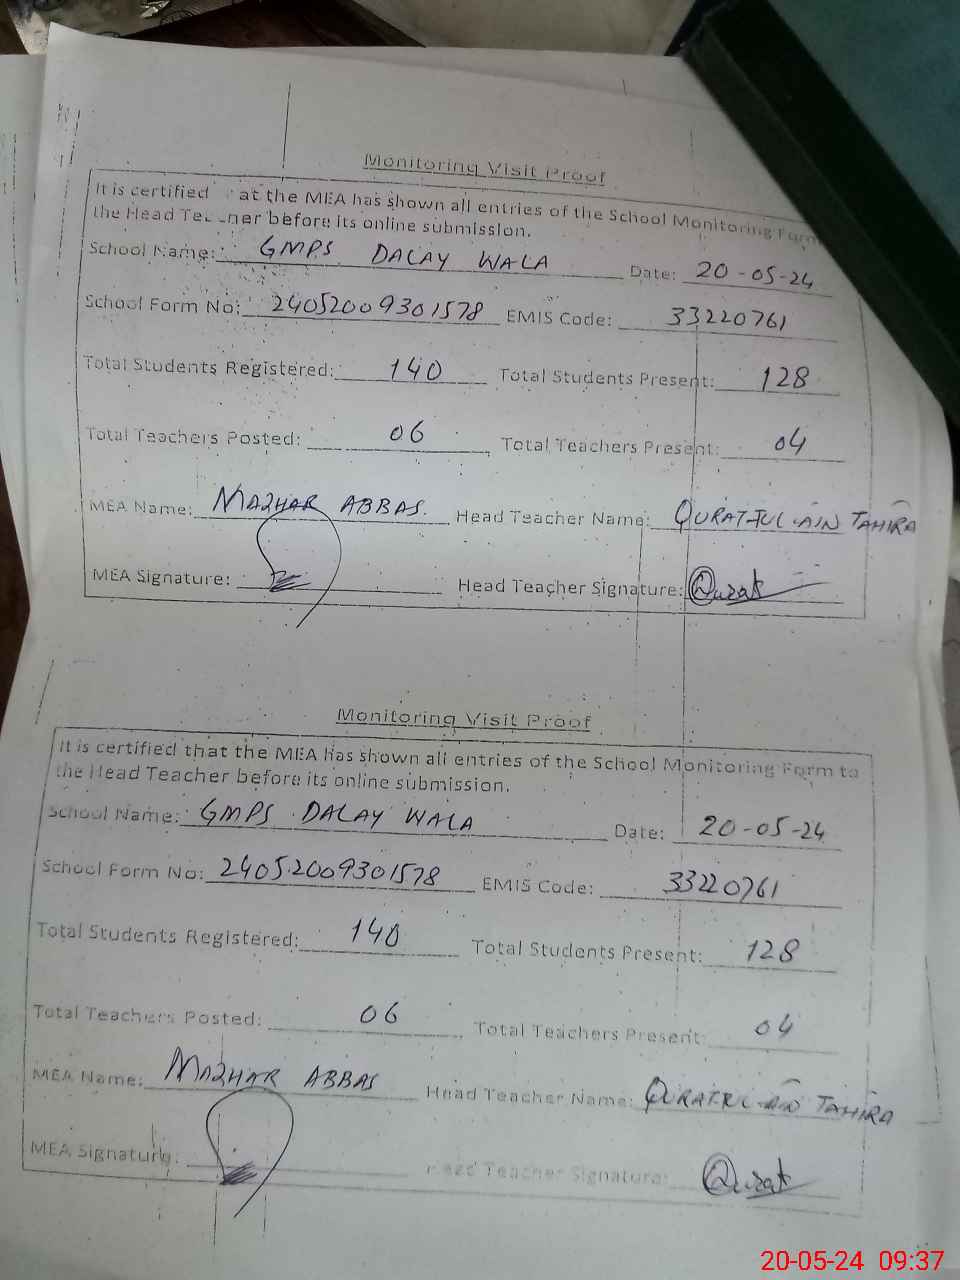 Monitoring Visit Proof
It is certified at the MEA has shown all entries of the School Monitoring Form
the Head before its online submission.
School Name: GMPS DALAY WALA Date: 20-05-24
School Form No: 24052009301578 EMIS Code: 33220761
Total Students Registered: 140 Total Students Present: 128
Total Teachers Posted: 06 Total Teachers Present: 04
MEA Name: MAZHAR ABBAS. Head Teacher Name: QURAT-UL-AIN TAHIRA
MEA Signature: Head Teacher Signature: Qurat
Monitoring Visit Proof
It is certified that the MEA has shown all entries of the School Monitoring Form to
the Head Teacher before its online submission.
School Name: GMPS DALAY WALA Date: 20-05-24
School Form No: 24052009301578 EMIS Code: 33220761
Total Students Registered: 140 Total Students Present: 128
Total Teachers Posted: 06 Total Teachers Present: 04
MEA Name: MAZHAR ABBAS Head Teacher Name: QURAT-UL-AIN TAHIRA
MEA Signature: Head Teacher Signature: Qurat
20-05-24 09:37